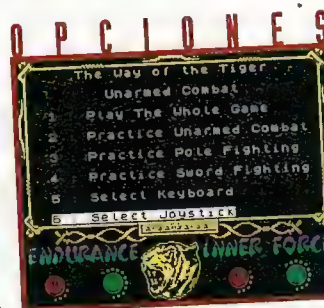 OPCIONES
The Way of the Tiger
Unarmed Combat
1 Play The Whole Game
2 Practice Unarmed Combat
3 Practice Pole Fighting
4 Practice Sword Fighting
5 Select Keyboard
6 Select Joystick
ENDURANCE INNER FORCE